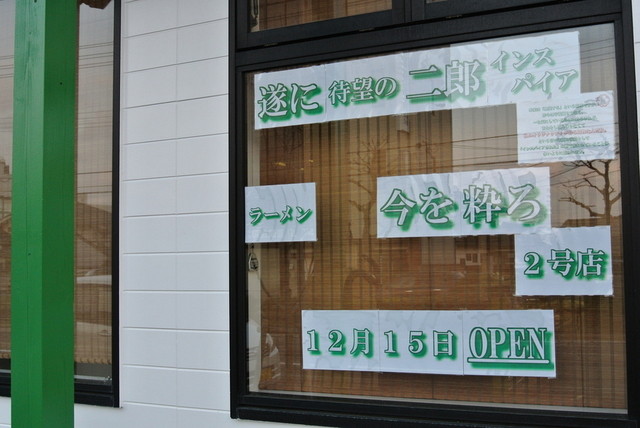 遂に 待望の 二郎 インス
パイア
ラーメン 今を 粋ろ
2号店
12月 15日 OPEN